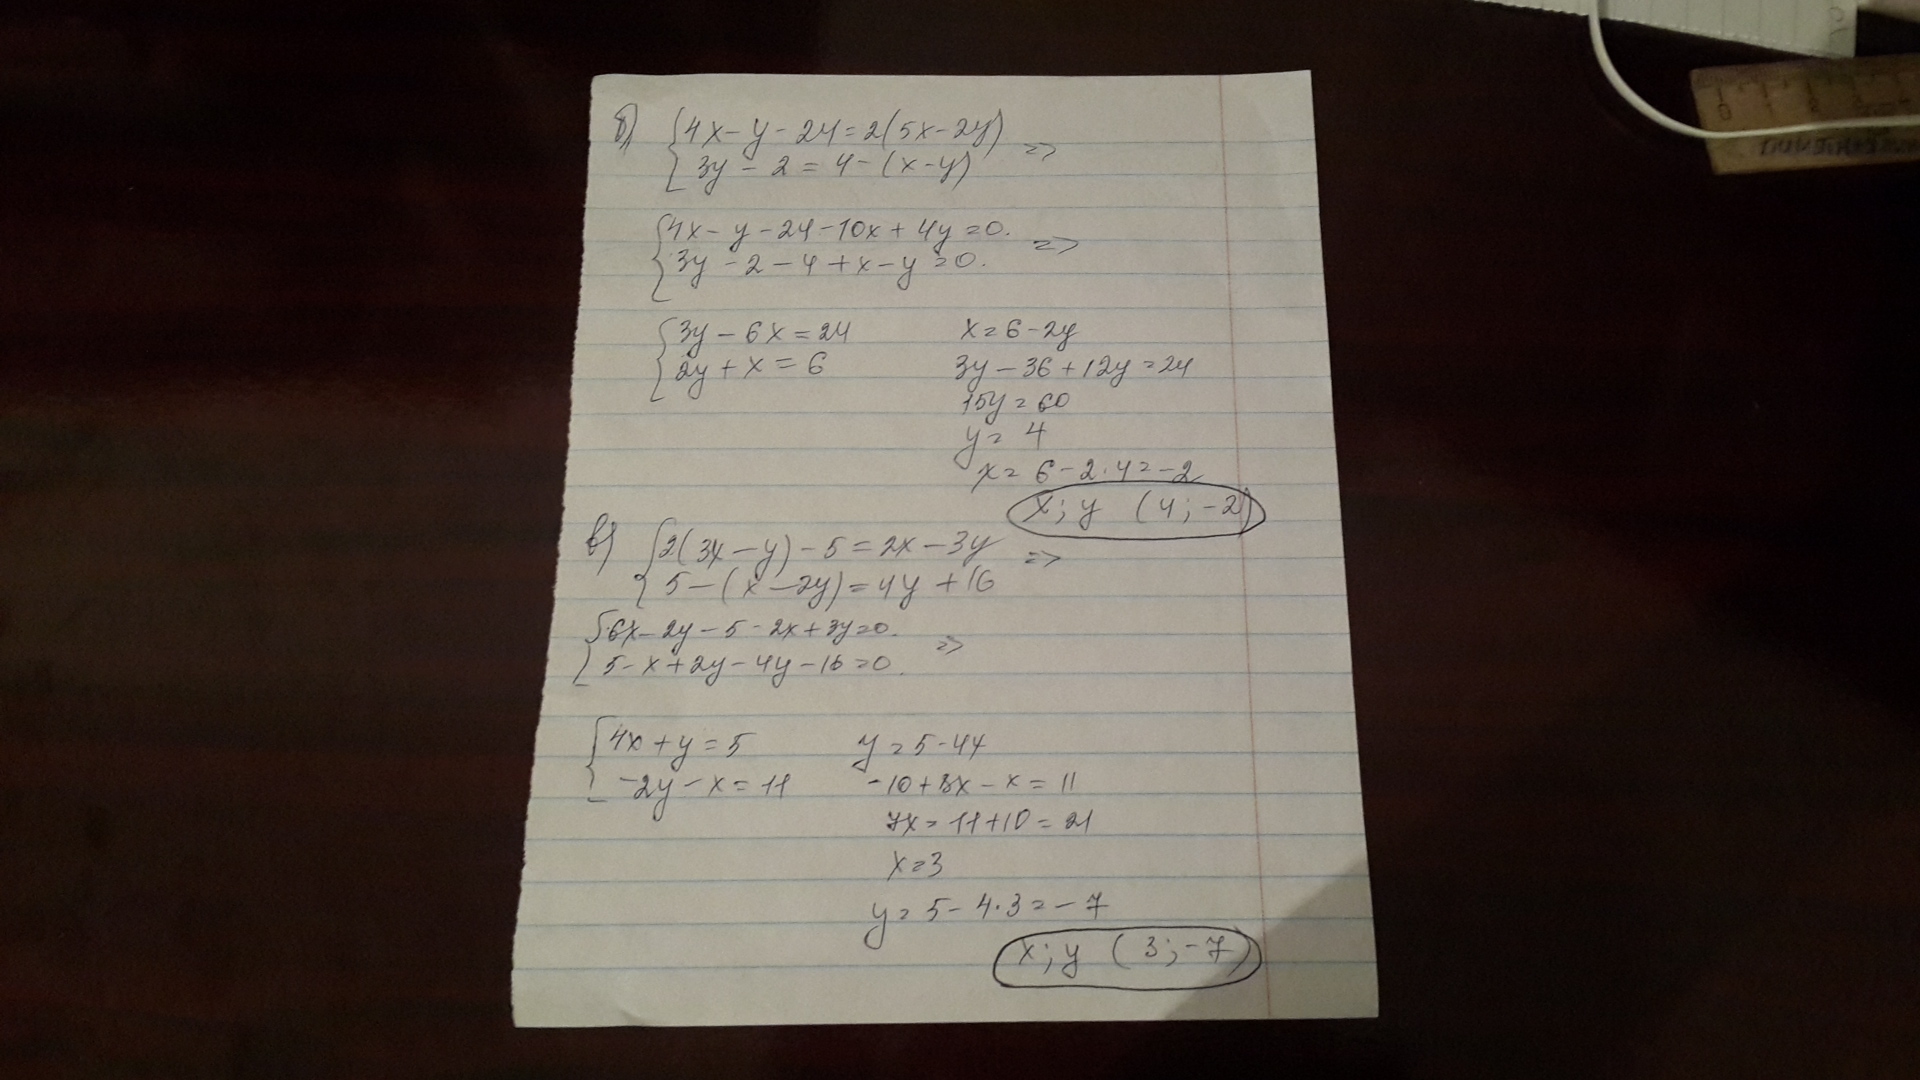 б) {4x - y - 24 = 2(5x - 2y)
3y - 2 = 4 - (x - y) =>
{4x - y - 24 - 10x + 4y = 0.
3y - 2 - 4 + x - y = 0. =>
{3y - 6x = 24
2y + x = 6
x = 6 - 2y
3y - 36 + 12y = 24
15y = 60
y = 4
x = 6 - 2·4 = -2
x; y (4; -2)
в) {2(3x - y) - 5 = 2x - 3y
5 - (x - 2y) = 4y + 16 =>
{6x - 2y - 5 - 2x + 3y = 0.
5 - x + 2y - 4y - 16 = 0. =>
{4x + y = 5
-2y - x = 11
y = 5 - 4x
-10 + 8x - x = 11
7x = 11 + 10 = 21
x = 3
y = 5 - 4·3 = -7
x; y (3; -7)
0 1 2